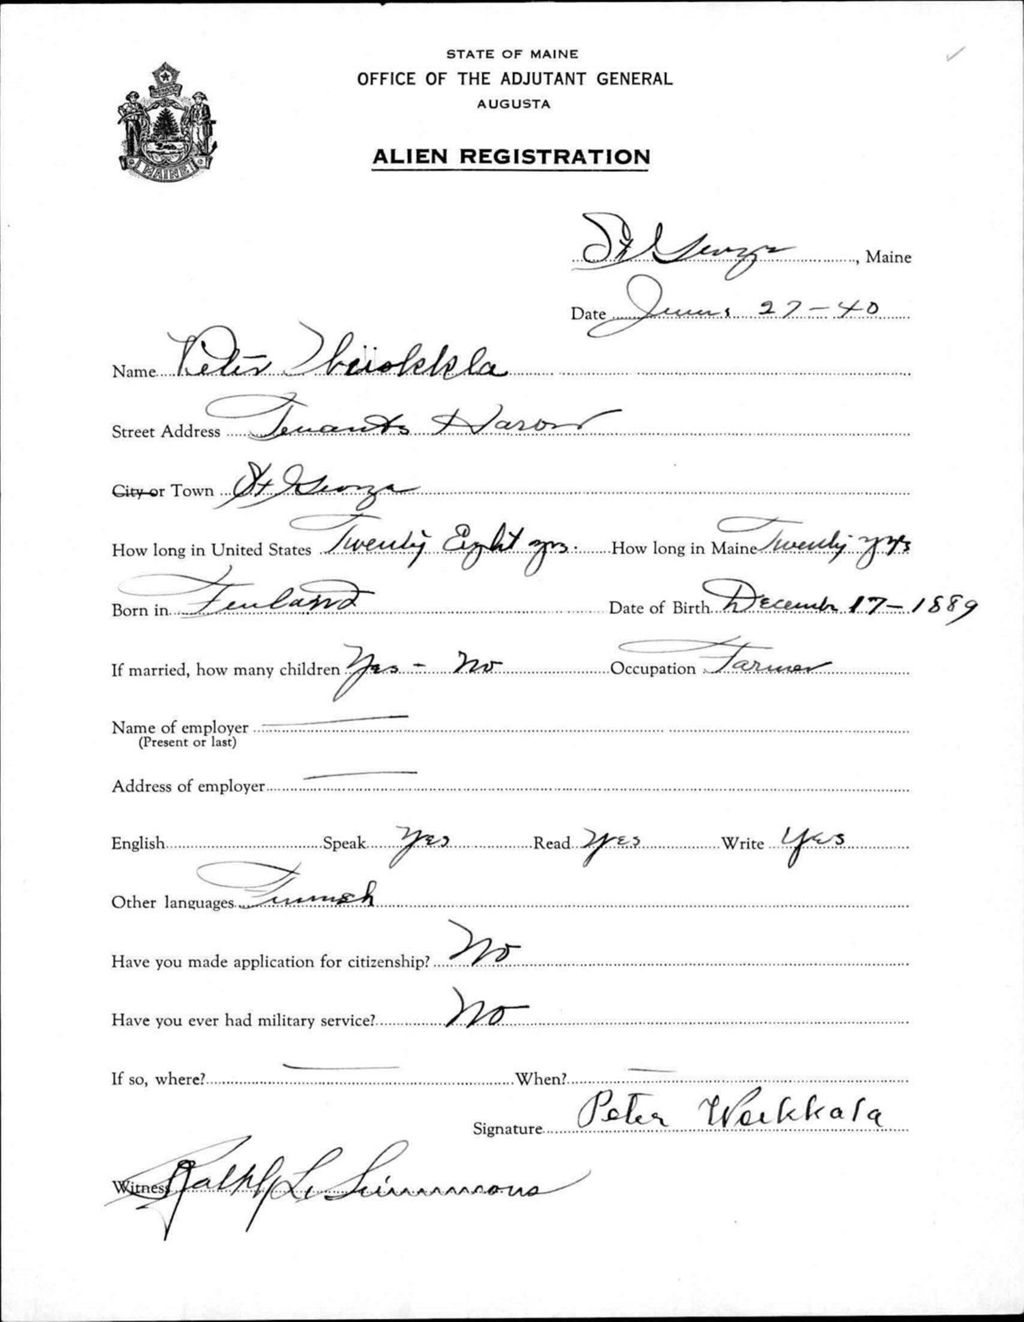 STATE OF MAINE
OFFICE OF THE ADJUTANT GENERAL
AUGUSTA
MAINE
ALIEN REGISTRATION
St George, Maine
Date June 27-40
Name Peter
Street Address Tenants Harbor
City or Town St George
How long in United States Twenty Eight yrs. How long in Maine Twenty yrs
Born in Finland Date of Birth December 17-1889
If married, how many children Yes - No Occupation Farmer
Name of employer
(Present or last)
Address of employer
English Speak Yes Read Yes Write Yes
Other languages Finnish
Have you made application for citizenship? No
Have you ever had military service? No
If so, where? When?
Signature Peter Weikkala
Witness Ralph L Simmons